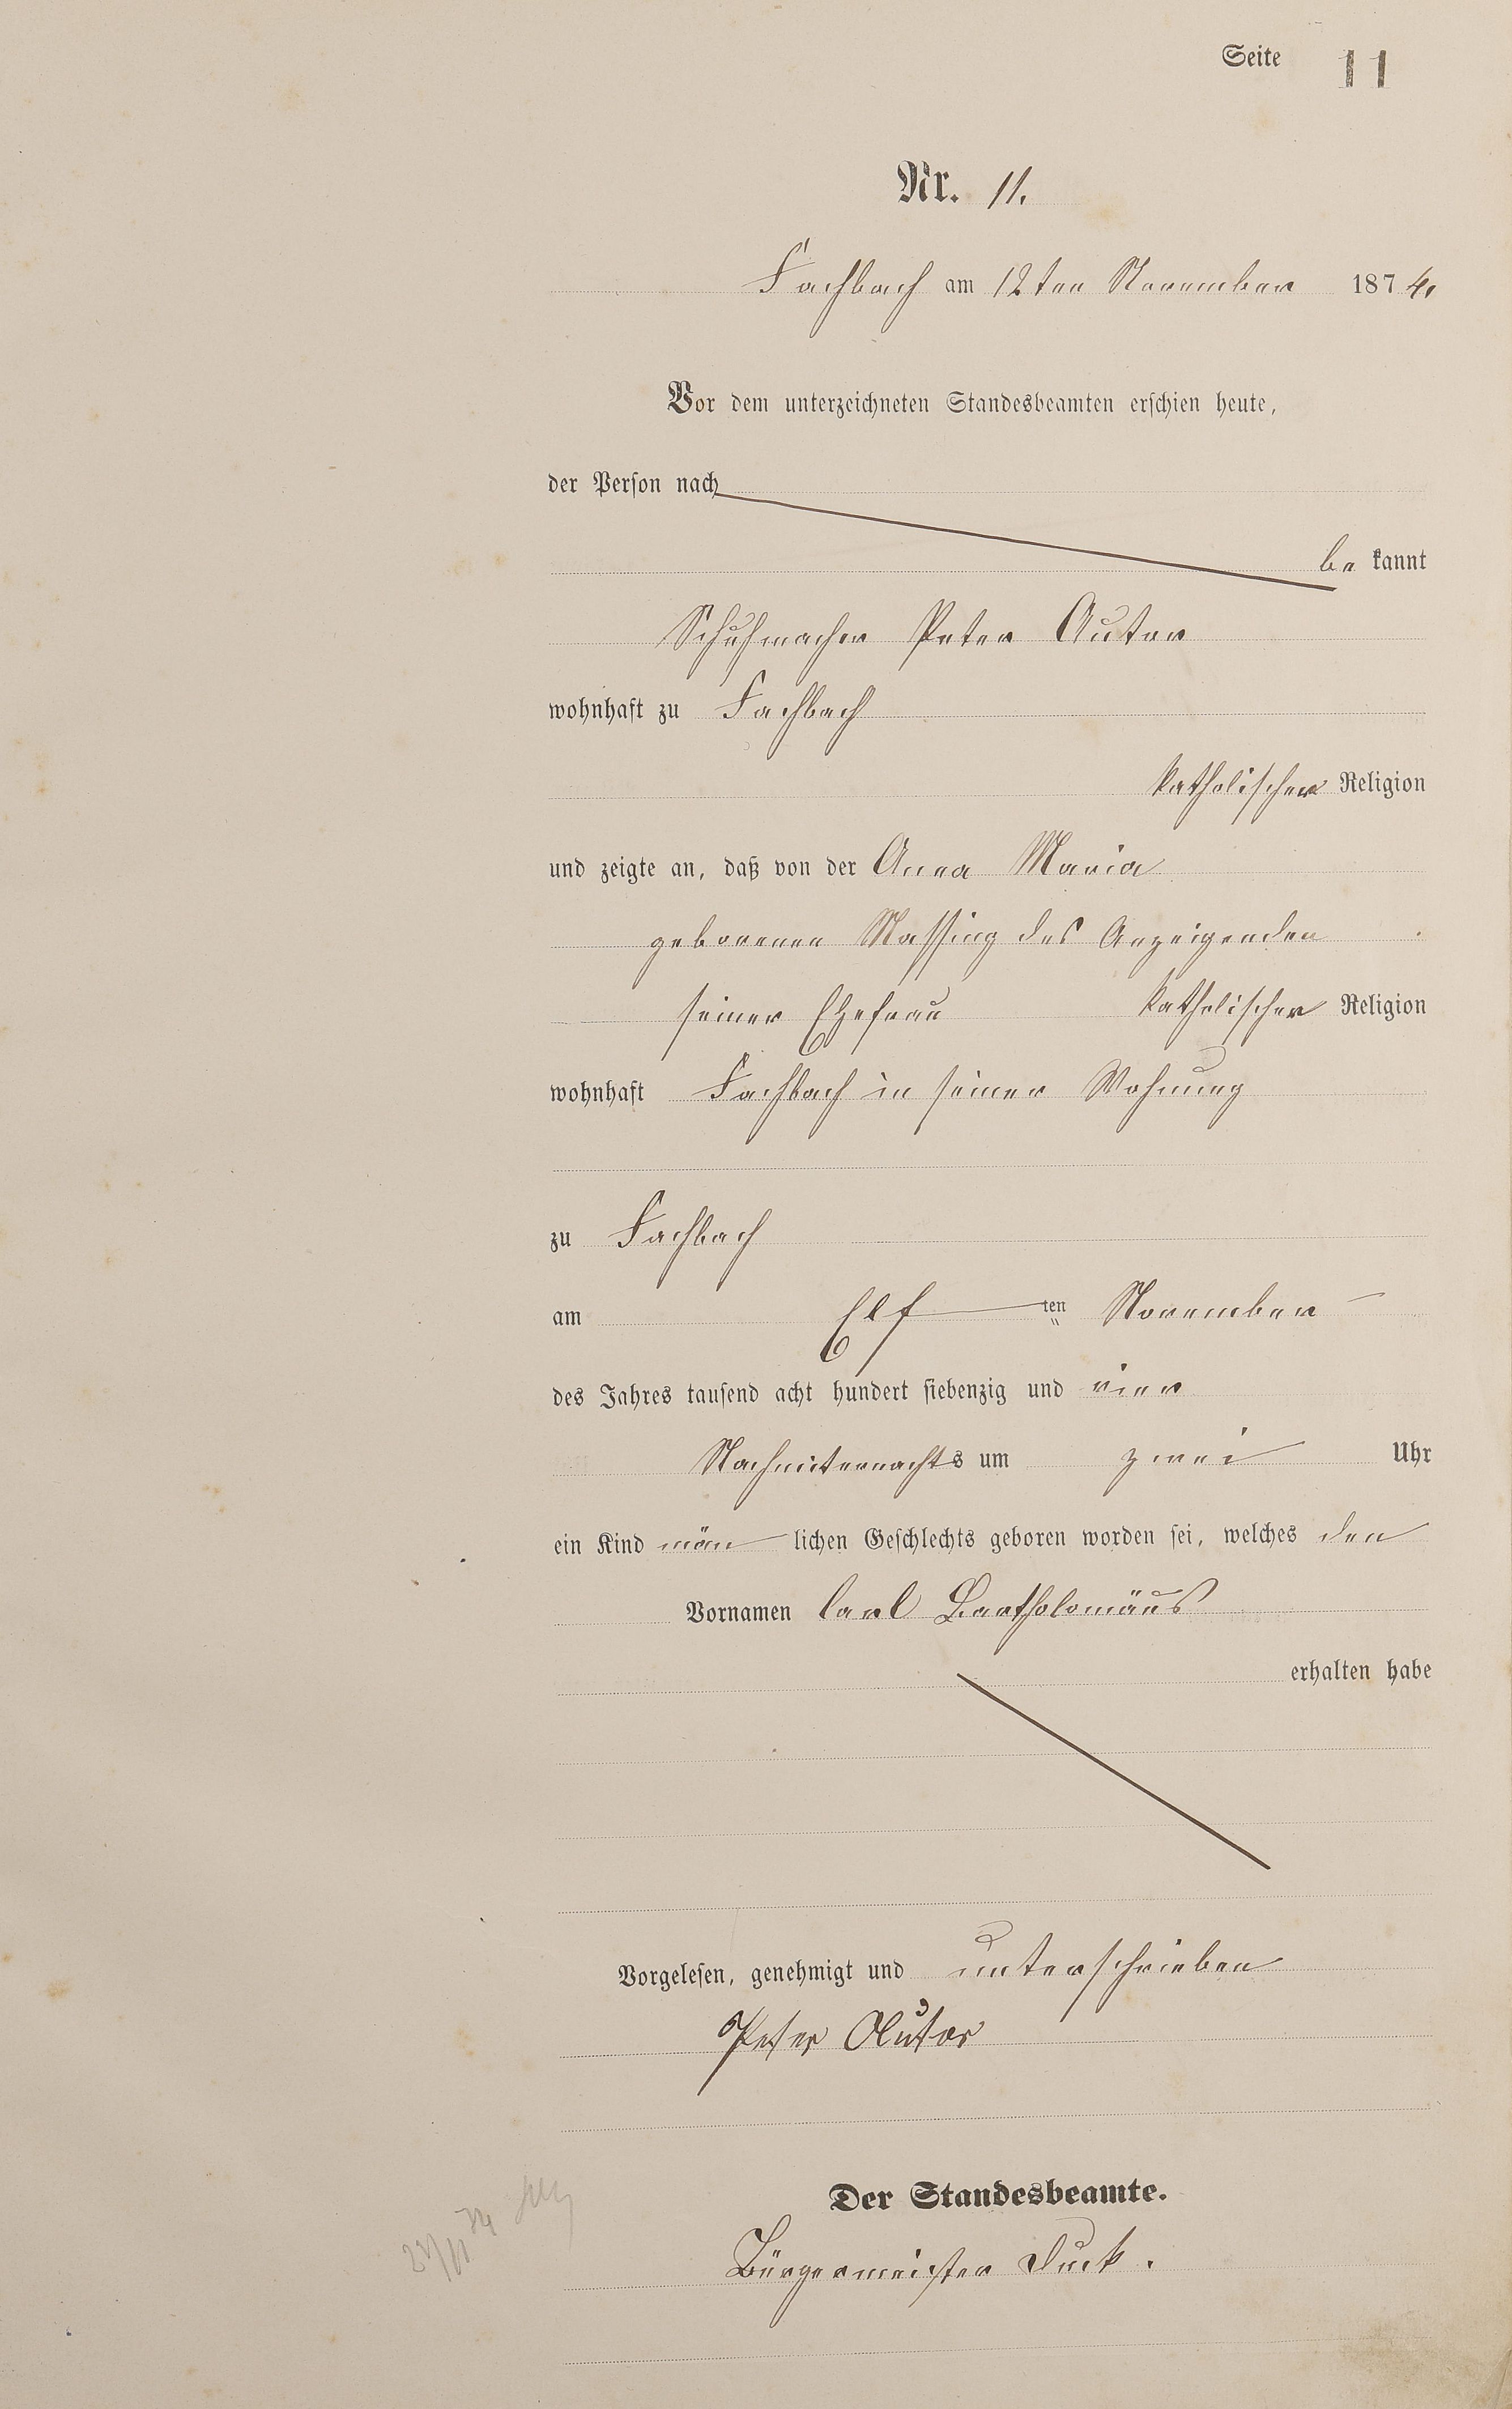 Seite 11
Nr. 11.
Fachbach am 12ten November 1874.
Vor dem unterzeichneten Standesbeamten erschien heute,
der Person nach
be kannt
Schuhmacher Peter Autor
wohnhaft zu Fachbach
katholischer Religion
und zeigte an, daß von der Anna Maria
geborenen Massing des Anzeigenden
seiner Ehefrau katholischer Religion
wohnhaft Fachbach in seiner Wohnung
zu Fachbach
am Elf ten November
des Jahres tausend acht hundert siebenzig und vier
Nachmiternachts um zwei Uhr
ein Kind män lichen Geschlechts geboren worden sei, welches den
Vornamen Carl Bartholomäus
erhalten habe
Vorgelesen, genehmigt und unterschrieben
Peter Autor
Der Standesbeamte.
Bürgermeister Duck.